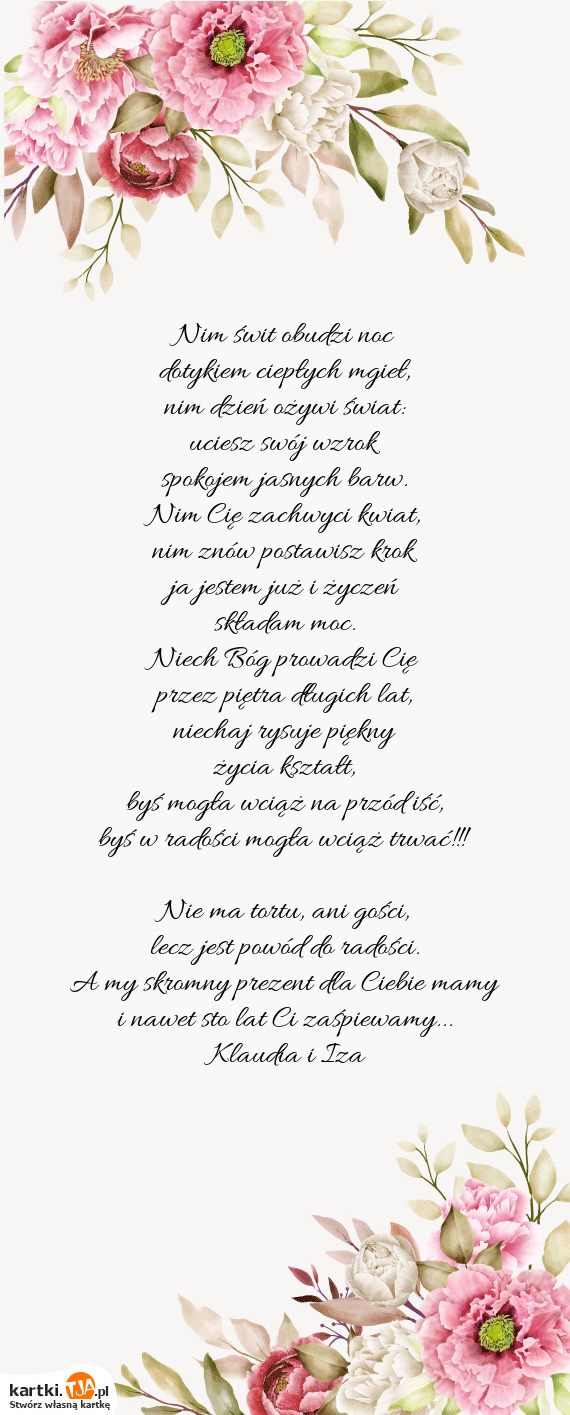 Nim świt obudzi noc
dotykiem ciepłych mgieł,
nim dzień ożywi świat:
uciesz swój wzrok
spokojem jasnych barw.
Nim Cię zachwyci kwiat,
nim znów postawisz krok
ja jestem już i życzeń
składam moc.
Niech Bóg prowadzi Cię
przez piętra długich lat,
niechaj rysuje piękny
życia kształt,
byś mogła wciąż na przód iść,
byś w radości mogła wciąż trwać!!!

Nie ma tortu, ani gości,
lecz jest powód do radości.
A my skromny prezent dla Ciebie mamy
i nawet sto lat Ci zaśpiewamy...
Klaudia i Iza
kartki.TJA.pl
Stwórz własną kartkę